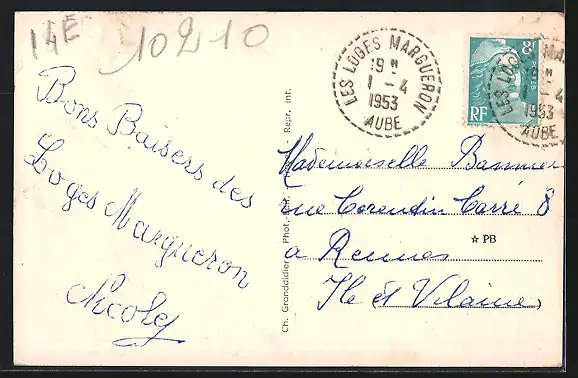 14E 10210
Bons Baisers des
Loges Margueron
Nicole
Ch. Granddidier Phot. Repr. int.
LES LOGES MARGUERON
19 H
1 - 4
1953
AUBE
8F
POSTES
RF
LES LOGES MA
H
1 - 4
1953
AUBE
Mademoiselle
rue Corentin Carré 8
☆ PB
à Rennes
Ile et Vilaine